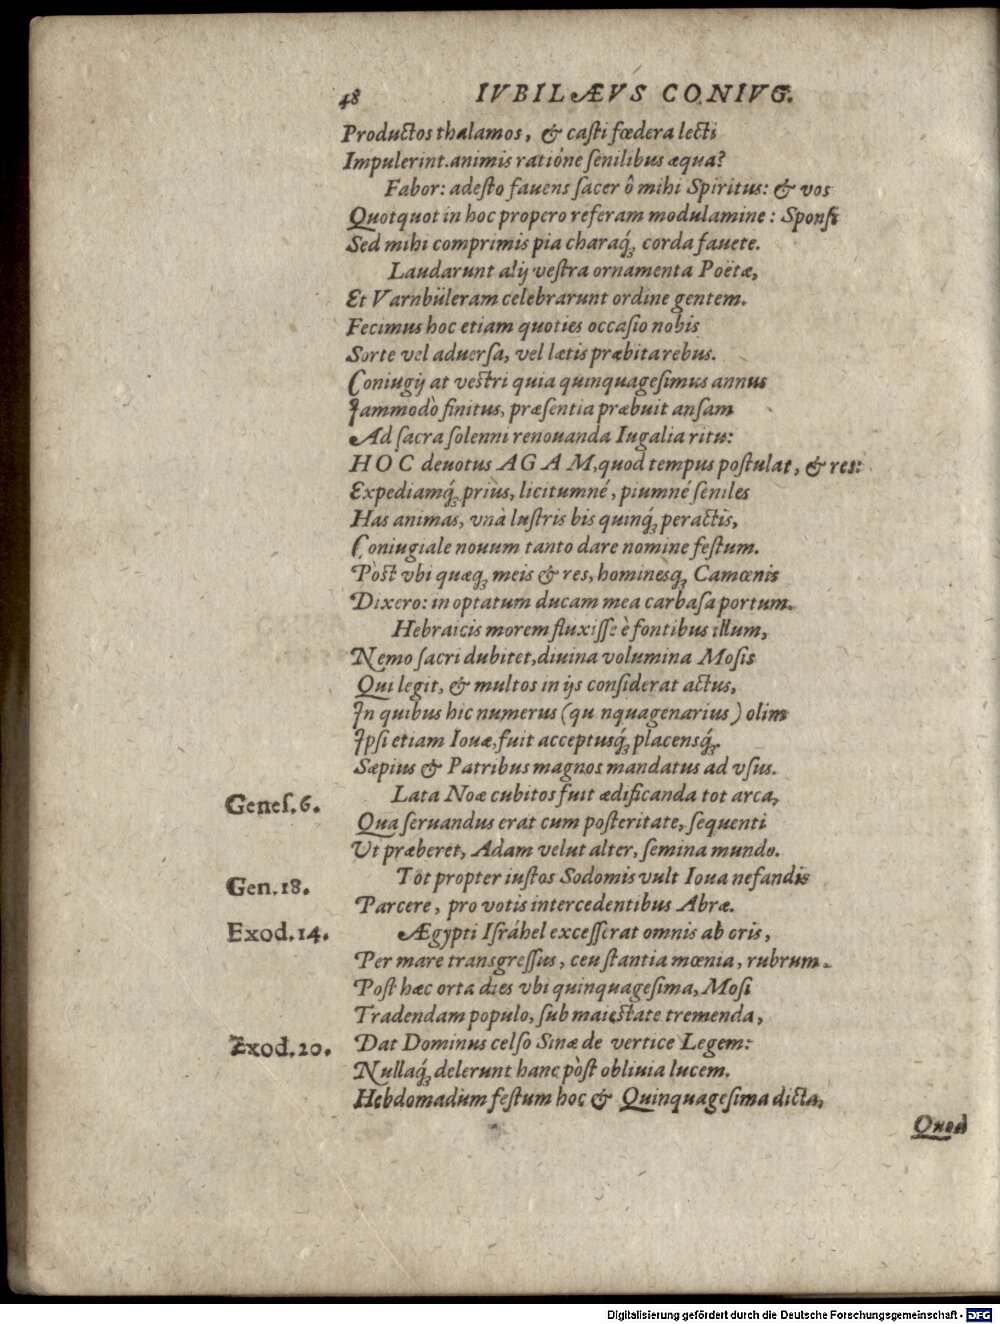 48 IVBILÆVS CONIVG.
Productos thalamos, & casti fœdera lecti
Impulerint.animis ratióne senilibus æqua?
Fabor: adesto fauens sacer ô mihi Spiritus: & vos
Quotquot in hoc propero referam modulamine: Sponsi
Sed mihi comprimis pia charaq́; corda fauete.
Laudarunt alij vestra ornamenta Poëtæ,
Et Varnbüleram celebrarunt ordine gentem.
Fecimus hoc etiam quoties occasio nobis
Sorte vel aduersa, vel lætis præbita rebus.
Coniugij at vestri quia quinquagesimus annus
Jammodò finitus, præsentia præbuit ansam
Ad sacra solenni renouanda Iugalia ritu:
HOC deuotus AGAM, quod tempus postulat, & res:
Expediamq́; priùs, licitumné, piumné seniles
Has animas, vnà lustris bis quinq́; peractis,
Coniugiale nouum tanto dare nomine festum.
Pòst vbi quæq; meis & res, hominesq; Camœnis
Dixero: in optatum ducam mea carbasa portum.
Hebraicis morem fluxisse è fontibus illum,
Nemo sacri dubitet, diuina volumina Mosis
Qui legit, & multos in ijs considerat actus,
In quibus hic numerus (qu nquagenarius) olim
Ipsi etiam Iouæ, fuit acceptusq́; placensq́;.
Sæpius & Patribus magnos mandatus ad vsus.
Genes. 6. Lata Noæ cubitos fuit ædificanda tot arca,
Qua seruandus erat cum posteritate, sequenti
Vt præberet, Adam velut alter, semina mundo.
Gen. 18. Tot propter iustos Sodomis vult Ioua nefandis
Parcere, pro votis intercedentibus Abræ.
Exod. 14. Ægypti Isráhel excesserat omnis ab oris,
Per mare transgressus, ceu stantia mœnia, rubrum.
Post hæc orta dies vbi quinquagesima, Mosi
Tradendam populo, sub maiestate tremenda,
Exod. 20. Dat Dominus celso Sinæ de vertice Legem:
Nullaq́; delerunt hanc pòst obliuia lucem.
Hebdomadum festum hoc & Quinquagesima dicta,
Quod
Digitalisierung gefördert durch die Deutsche Forschungsgemeinschaft - DFG